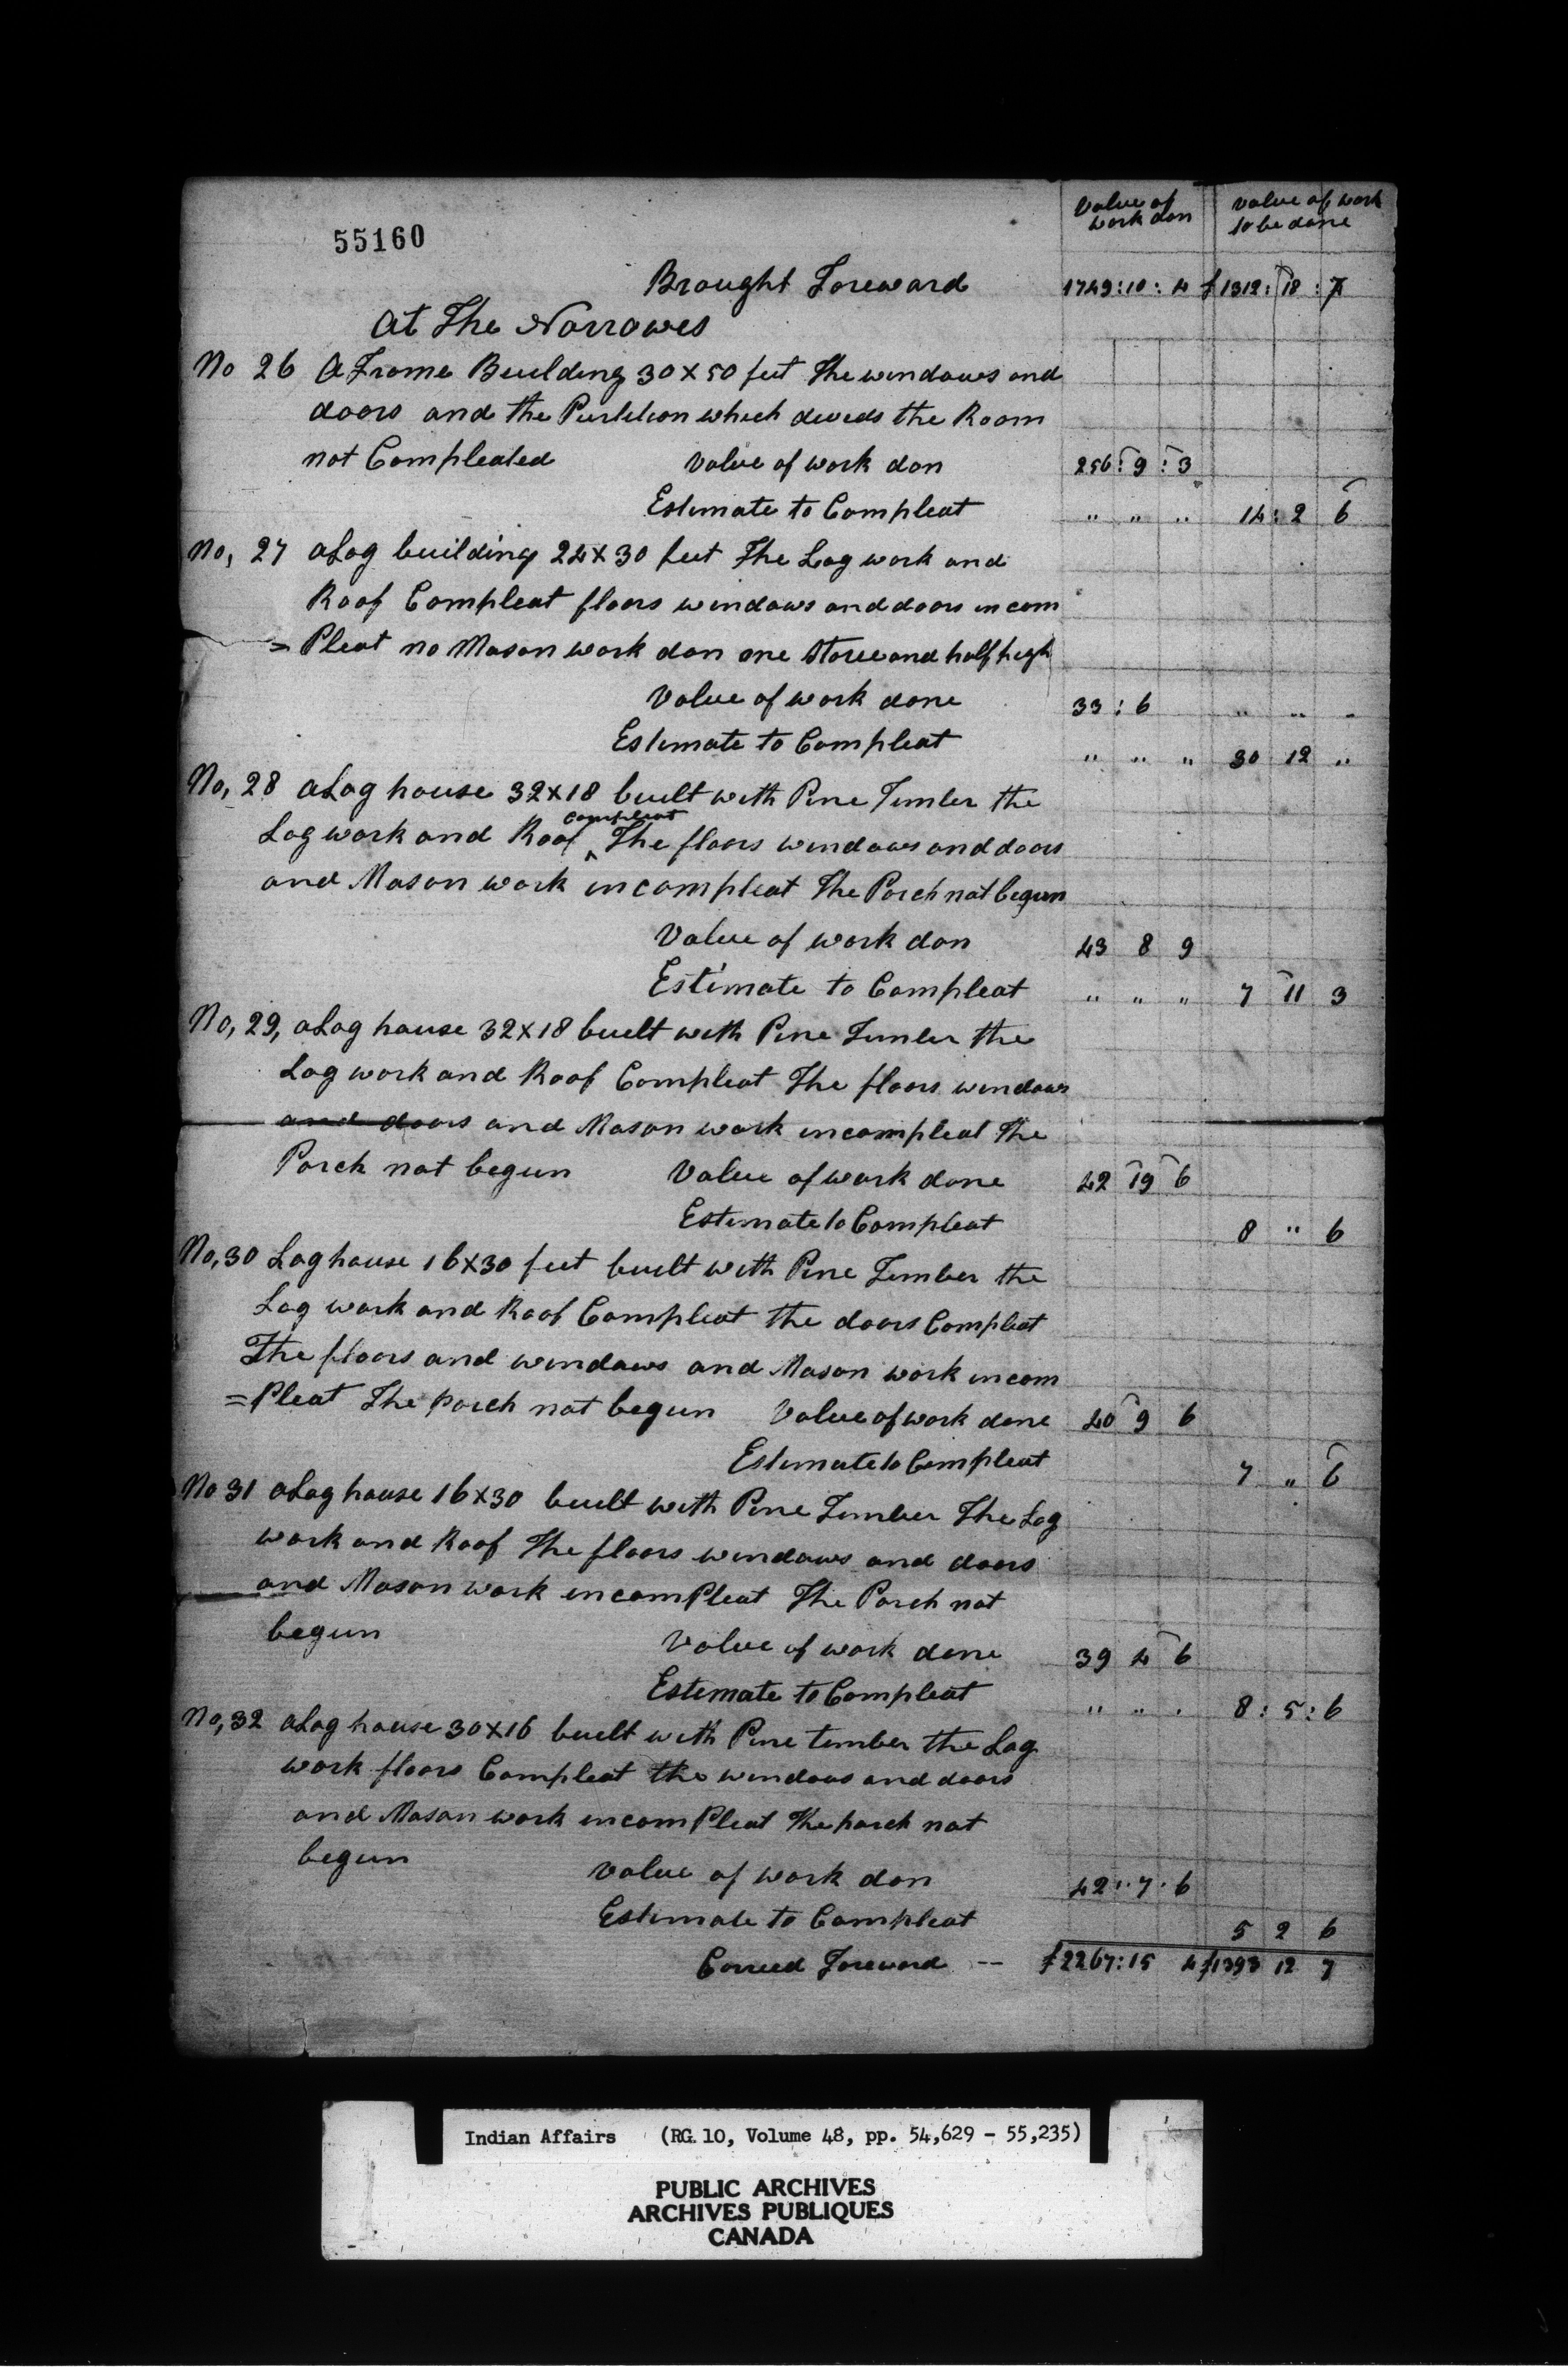 Value of work don
Value of work to be done
55160
Brought Foreward 1749:10:4 £1312:18:7
At The Norrowes
No 26 A Frame Beulding 30x50 feet The windows and
doors and the Partition which deveds the Room
not Compleated Value of work don 256:9:3
Estimate to Compleat " " " 14:2 6
No, 27 a Log building 24x30 feet The Log work and
Roof Compleat floors windows and doors incom
=Pleat no Mason work don one Storee and half high
Value of work done 33:6 " " "
Estimate to Compleat " " " 30 12 "
No, 28 a Log house 32x18 built with Pine Timber the
Log work and Roof ^compleat The floors windows and doors
and Mason work incompleat The Porch not begun
Value of work don 43 8 9
Estimate to Compleat " " " 7 11 3
No, 29, a Log house 32x18 built with Pine Timber the
Log work and Roof Compleat The floors windows
and doors and Mason work incompleat The
Porch not begun Value of work done 42 19 6
Estimate to Compleat 8 " 6
No, 30 Log house 16x30 feet built with Pine Timber the
Log work and Roof Compleat the doors Compleat
The floors and windows and Mason work incom
=Pleat The Porch not begun Value of work done 40 9 6
Estimate to Compleat 7 " 6
No 31 a Log house 16x30 built with Pine Timber The Log
work and Roof The floors windows and doors
and Mason work incomPleat The Porch not
begun Value of work done 39 4 6
Estemate to Compleat " " " 8:5:6
No, 32 a Log house 30x16 built with Pine timber the Log
work floors Compleat the windows and doors
and Mason work incomPleat The porch not
begun Value of work don 42:7:6
Estimate to Compleat 5 2 6
Carreed Foreword -- £2267:15 4 £1393 12 7
Indian Affairs (RG. 10, Volume 48, pp. 54,629 - 55,235)
PUBLIC ARCHIVES
ARCHIVES PUBLIQUES
CANADA